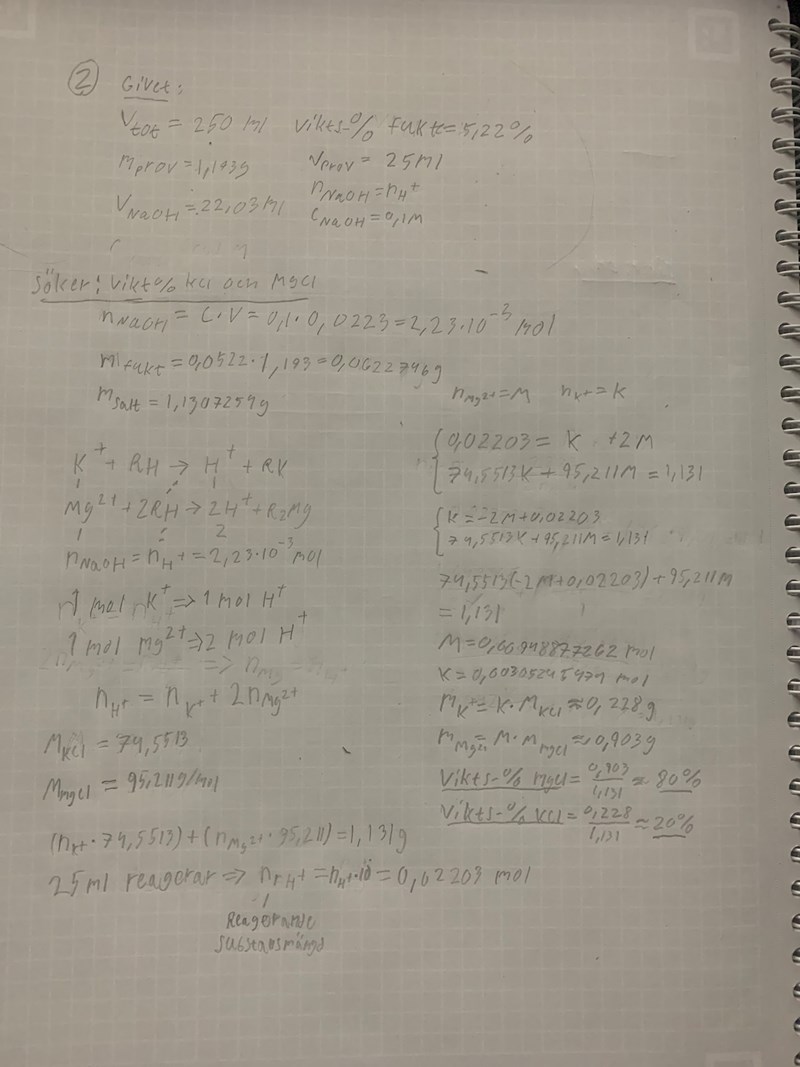 ② Givet:
Vtot = 250 ml vikts-% fukt = 5,22%
mprov = 1,193g Vprov = 25ml
VNaOH = 22,03ml nNaOH = nH+
CNaOH = 0,1M
Söker: Vikt% KCl och MgCl
nNaOH = C·V = 0,1·0,0223 = 2,23·10⁻³ mol
mfukt = 0,0522·1,193 = 0,0622746g
msalt = 1,1307254g
K⁺ + RH → H⁺ + RK
Mg²⁺ + 2RH → 2H⁺ + R₂Mg
1 2
nNaOH = nH+ = 2,23·10⁻³ mol
1 mol K⁺ => 1 mol H⁺
1 mol Mg²⁺ => 2 mol H⁺
nH+ = nK+ + 2nMg²⁺
MKCl = 74,5513
MMgCl = 95,211g/mol
(nK+ · 74,5513) + (nMg²⁺ · 95,211) = 1,131g
25ml reagerar => nrH+ = nH+·10 = 0,02203 mol
Reagerande
substansmängd
nMg²⁺ = M nK+ = K
{0,02203 = K + 2M
74,5513K + 95,211M = 1,131
{K = -2M + 0,02203
74,5513K + 95,211M = 1,131
74,5513(-2M + 0,02203) + 95,211M
= 1,131
M = 0,00948877262 mol
K = 0,00305245474 mol
mK+ = K·MKCl ≈ 0,228g
mMg²⁺ = M·MMgCl ≈ 0,903g
Vikts-% MgCl = 0,903/1,131 ≈ 80%
Vikts-% KCl = 0,228/1,131 ≈ 20%